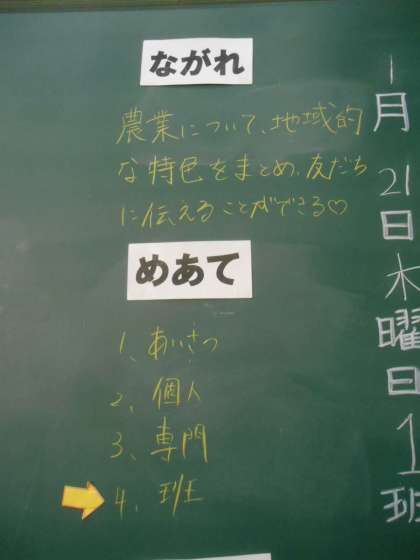 1月21日木曜日1班
ながれ
農業について、地域的
な特色をまとめ、友だち
に伝えることができる♡
めあて
1、あいさつ
2、個人
3、専門
4、班